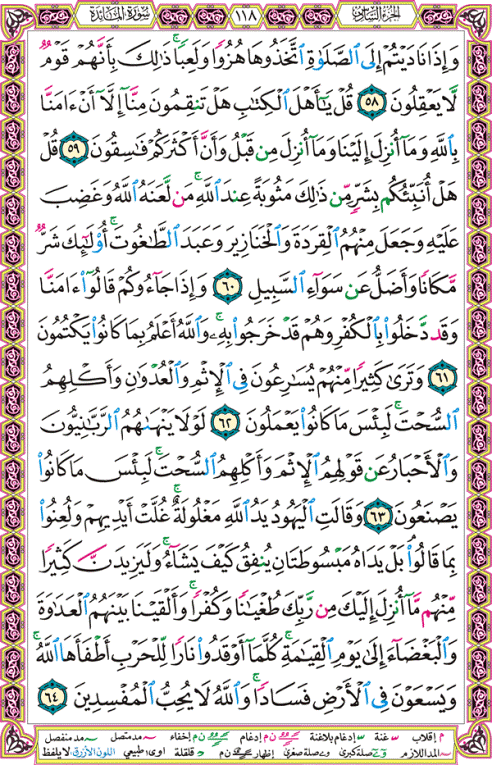 سُورَةُ المَائِدَة
١١٨
الجزء السادس
وَإِذَا نَادَيْتُمْ إِلَى الصَّلَوٰةِ اتَّخَذُوهَا هُزُوًا وَلَعِبًا ۚ ذَٰلِكَ بِأَنَّهُمْ قَوْمٌ
لَّا يَعْقِلُونَ ٥٨ قُلْ يَا أَهْلَ الْكِتَابِ هَلْ تَنقِمُونَ مِنَّا إِلَّا أَنْ ءَامَنَّا
بِاللَّهِ وَمَا أُنزِلَ إِلَيْنَا وَمَا أُنزِلَ مِن قَبْلُ وَأَنَّ أَكْثَرَكُمْ فَاسِقُونَ ٥٩ قُلْ
هَلْ أُنَبِّئُكُم بِشَرٍّ مِّن ذَٰلِكَ مَثُوبَةً عِندَ اللَّهِ ۚ مَن لَّعَنَهُ اللَّهُ وَغَضِبَ
عَلَيْهِ وَجَعَلَ مِنْهُمُ الْقِرَدَةَ وَالْخَنَازِيرَ وَعَبَدَ الطَّاغُوتَ ۚ أُولَٰئِكَ شَرٌّ
مَّكَانًا وَأَضَلُّ عَن سَوَاءِ السَّبِيلِ ٦٠ وَإِذَا جَاءُوكُمْ قَالُوا ءَامَنَّا
وَقَد دَّخَلُوا بِالْكُفْرِ وَهُمْ قَدْ خَرَجُوا بِهِ ۚ وَاللَّهُ أَعْلَمُ بِمَا كَانُوا يَكْتُمُونَ
٦١ وَتَرَىٰ كَثِيرًا مِّنْهُمْ يُسَارِعُونَ فِي الْإِثْمِ وَالْعُدْوَانِ وَأَكْلِهِمُ
السُّحْتَ ۚ لَبِئْسَ مَا كَانُوا يَعْمَلُونَ ٦٢ لَوْلَا يَنْهَاهُمُ الرَّبَّانِيُّونَ
وَالْأَحْبَارُ عَن قَوْلِهِمُ الْإِثْمَ وَأَكْلِهِمُ السُّحْتَ ۚ لَبِئْسَ مَا كَانُوا
يَصْنَعُونَ ٦٣ وَقَالَتِ الْيَهُودُ يَدُ اللَّهِ مَغْلُولَةٌ ۚ غُلَّتْ أَيْدِيهِمْ وَلُعِنُوا
بِمَا قَالُوا ۘ بَلْ يَدَاهُ مَبْسُوطَتَانِ يُنفِقُ كَيْفَ يَشَاءُ ۚ وَلَيَزِيدَنَّ كَثِيرًا
مِّنْهُم مَّا أُنزِلَ إِلَيْكَ مِن رَّبِّكَ طُغْيَانًا وَكُفْرًا ۚ وَأَلْقَيْنَا بَيْنَهُمُ الْعَدَاوَةَ
وَالْبَغْضَاءَ إِلَىٰ يَوْمِ الْقِيَامَةِ ۚ كُلَّمَا أَوْقَدُوا نَارًا لِّلْحَرْبِ أَطْفَأَهَا اللَّهُ ۚ
وَيَسْعَوْنَ فِي الْأَرْضِ فَسَادًا ۚ وَاللَّهُ لَا يُحِبُّ الْمُفْسِدِينَ ٦٤
م إقلاب غنة إدغام بلاغنة ن م إدغام ن م إخفاء مد متصل مد منفصل
المد اللازم صلة كبرى صلة صغرى إظهار ن م قلقلة اوى: طبيعي اللون الأزرق: لا يلفظ